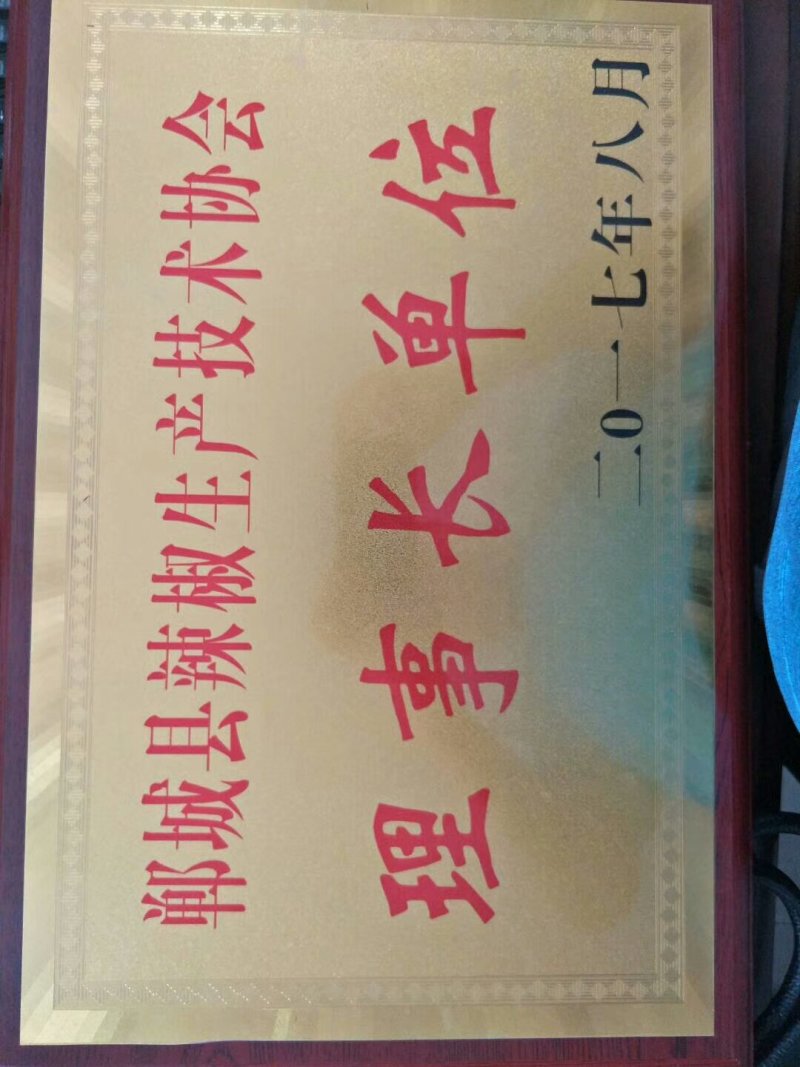 郸城县辣椒生产技术协会
理事长单位
二0一七年八月